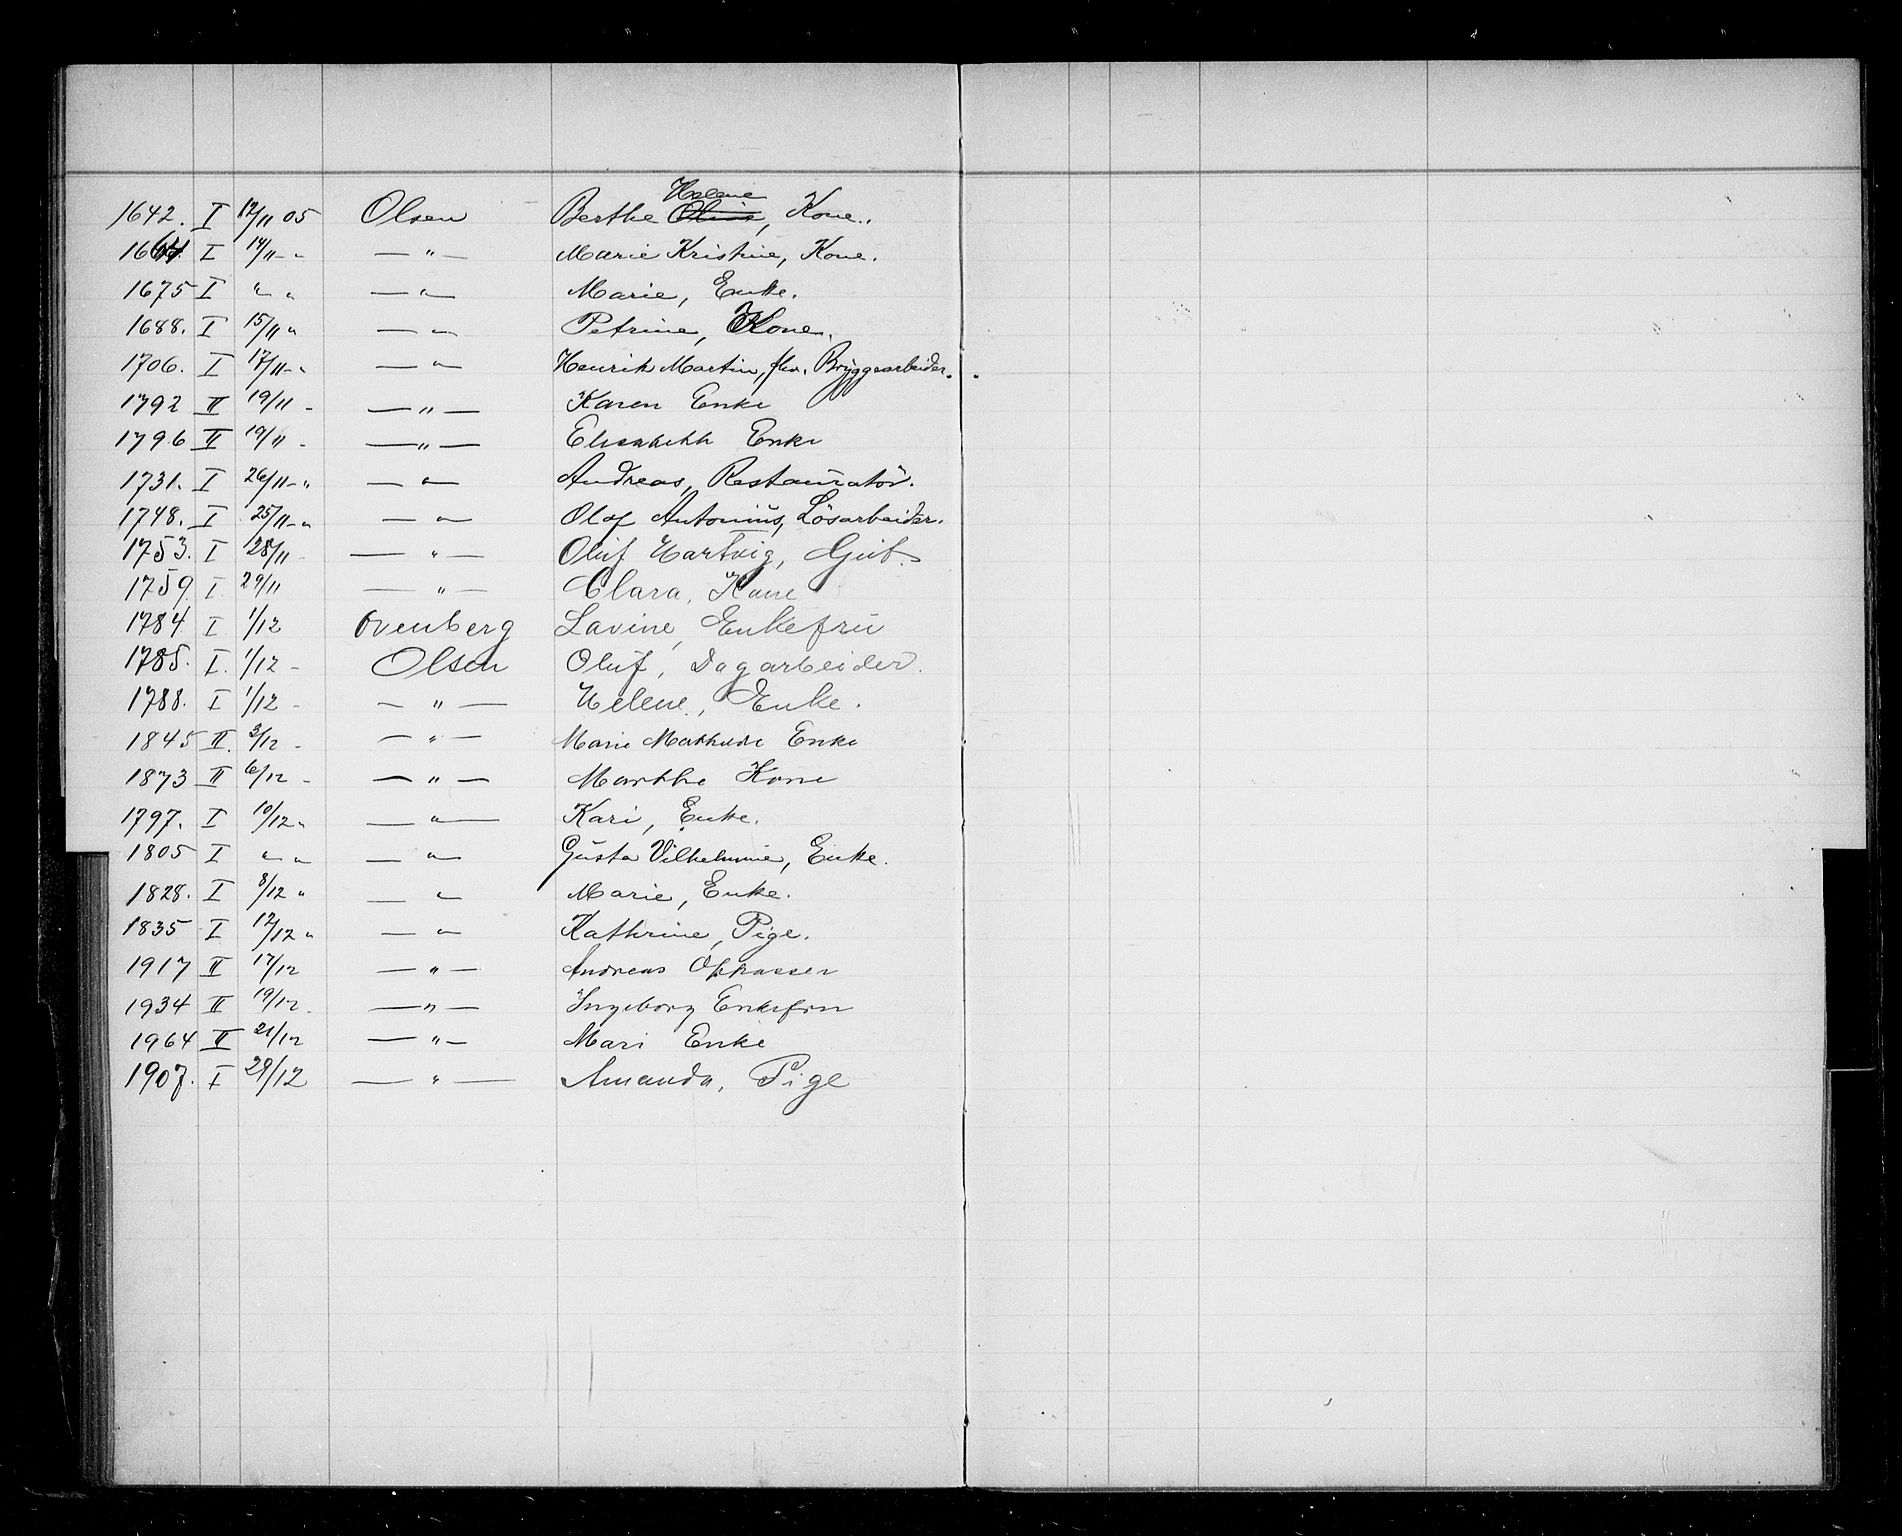 1642. I 12/11 05 Olsen Berthe Helene ~~Oline~~, Kone.
1664 I 14/11 - " — " — Marie Kristine, Kone.
1675 I " " — " — Marie, Enke.
1688. I 15/11 " — " — Petrine, Kone.
1706. I 17/11 - " — " — Henrik Martin, fhv. Bryggearbeider.
1792 II 19/11 - — " — Karen Enke
1796 II 19/11 - — " — Elisabeth Enke
1731. I 26/11 - " — " — Andreas, Restauratör.
1748. I 25/11 - " — " — Olaf Antonius, Lösarbeider.
1753. I 28/11 - — " — Oluf Hartvig, Gut.
1759. I. 29/11 — " — Clara, Kone
1784 I. 1/12 Ovenberg Lavine, Enkefru
1785. I. 1/12 - Olsen Oluf, Dagarbeider.
1788. I 1/12 - — " — Helene, Enke.
1845 II. 3/12 - — " — Marie Mathilde Enke
1873 II 6/12 - — " — Marthe Kone
1797. I 10/12 " — " — Kari, Enke.
1805 I " " — " — Gusta Vilhelmine, Enke.
1828. I 8/12 " — " — Marie, Enke.
1835 I 12/12 " — " — Kathrine, Pige.
1917 II 17/12 — " — Andreas Oppasser
1934 II 19/12 - — " — Ingeborg Enkefru
1964 II 21/12 — " — Mari Enke
1907. I 29/12 — " — Amanda, Pige